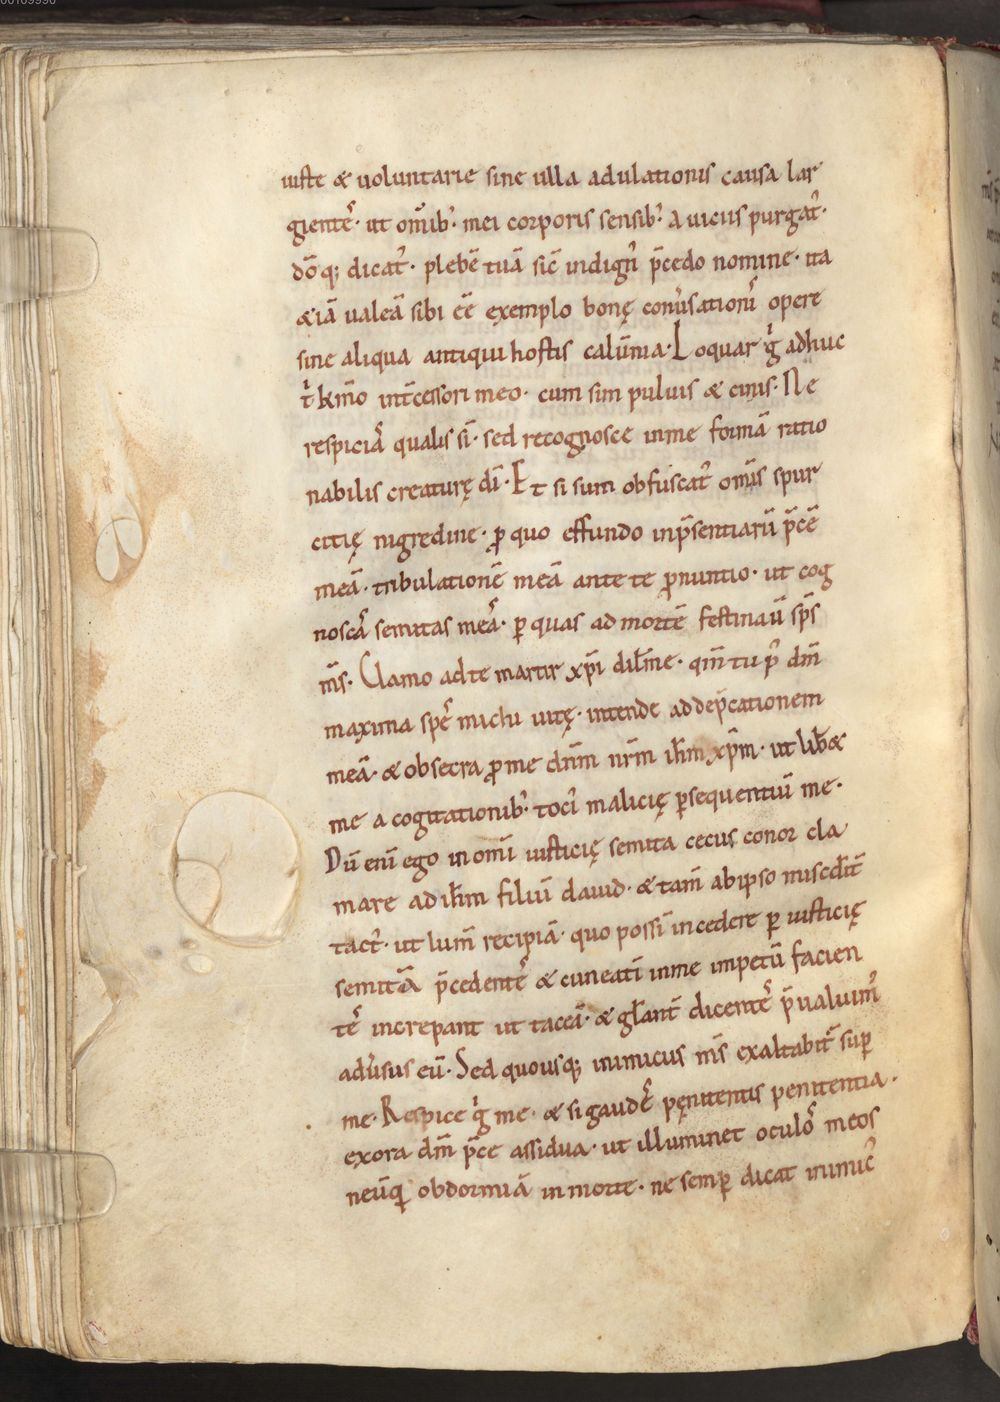 00109990
iuste & uoluntarie sine ulla adulationis causa lar
gientē· ut om̄ib; mei corporis sensib; a uicus purgat̄·
dōq; dicat̄· plebē tuā sic̄ indign̄ p̄cedo nomine· ita
& iā ualeā sibi eē exemplo bonę conūsation̄ opere
sine aliqua antiqui hostis calūnia· Loquar g̊ adhuc
int̄cessori meo· cum sim puluis & cinis· Ne
respiciā qualis sī· sed recognosce inme formā ratio
nabilis creaturę dī· Et si sum obfuscat̄ om̄is spur
citię nigredine· ꝓ quo effundo inp̄sentiarū p̄cē
meā· tribulationē meā ante te ꝓnuntio· ut cog
noscā semitas meā· ꝑ quas ad mortē festinaū sp̄s
m̄s· Clamo ad te martir xp̄i · qm̄ tu p̄ dm̄
maxima spē michi uitę· intende ad dep̄cationem
meā· & obsecra ꝓ me dnm̄ nrm̄ ih̄m xp̄m· ut lib̄&
me a cogitationib; tocī malicię ꝑsequentiū me·
Dū enī ego in omī iusticię semita cecus conor cla
mare ad ih̄m filiū dauid· & tam̄ ab ipso
tact̄· ut lum̄ recipiā· quo possī incedere ꝑ iusticię
semitā p̄cedentē & cuneatī inme impetū facien
tē increpant ut taceā· & gl̄ant̄ dicentē p̄ualuim̄
adūsus eū· Sed quousq; inimicus m̄s exaltabit̄ suꝑ
me· Respice g̊ me· & si gaudē pęnitentis penitentia·
exora dm̄ p̄ce assidua· ut illuminet oculō meos
neūq̄ obdormiā in morte· ne semꝑ dicat inimic̄